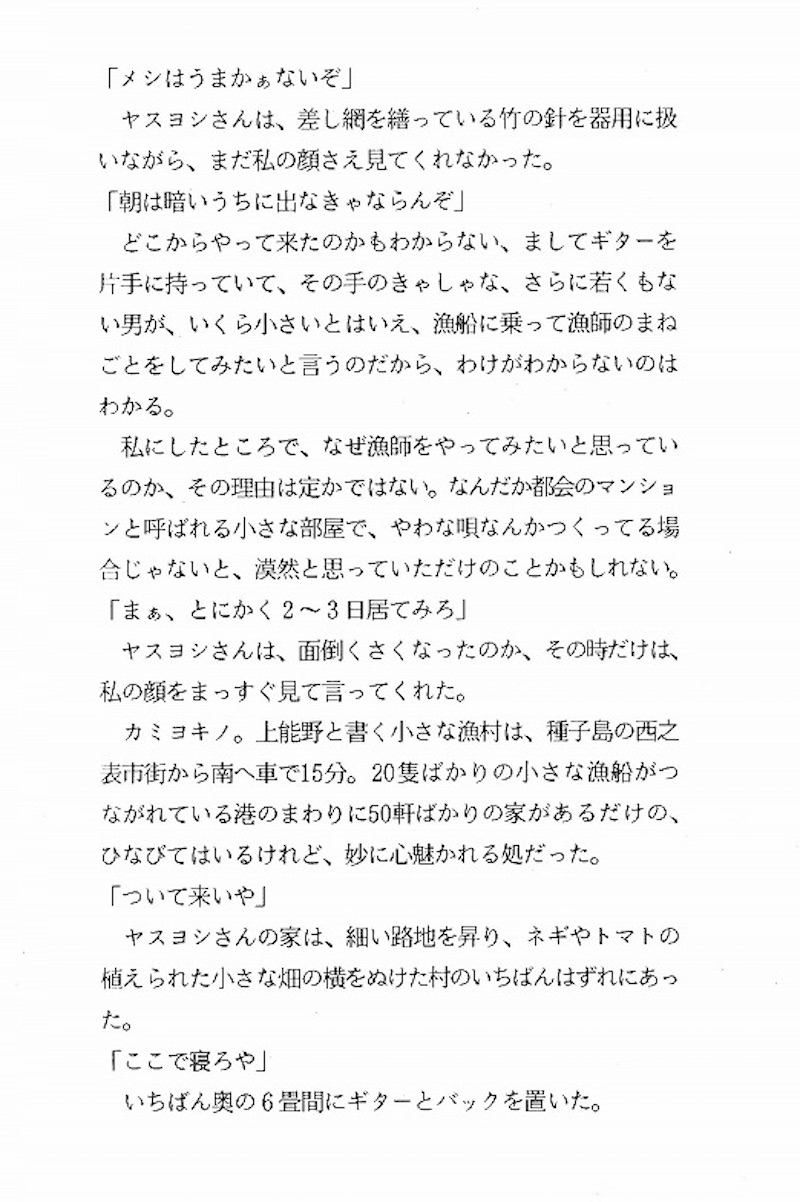 「メシはうまかぁないぞ」
ヤスヨシさんは、差し網を繕っている竹の針を器用に扱
いながら、まだ私の顔さえ見てくれなかった。
「朝は暗いうちに出なきゃならんぞ」
どこからやって来たのかもわからない、ましてギターを
片手に持っていて、その手のきゃしゃな、さらに若くもな
い男が、いくら小さいとはいえ、漁船に乗って漁師のまね
ごとをしてみたいと言うのだから、わけがわからないのは
わかる。
私にしたところで、なぜ漁師をやってみたいと思ってい
るのか、その理由は定かではない。なんだか都会のマンショ
ンと呼ばれる小さな部屋で、やわな唄なんかつくってる場
合じゃないと、漠然と思っていただけのことかもしれない。
「まぁ、とにかく2〜3日居てみろ」
ヤスヨシさんは、面倒くさくなったのか、その時だけは、
私の顔をまっすぐ見て言ってくれた。
カミヨキノ。上能野と書く小さな漁村は、種子島の西之
表市街から南へ車で15分。20隻ばかりの小さな漁船がつ
ながれている港のまわりに50軒ばかりの家があるだけの、
ひなびてはいるけれど、妙に心魅かれる処だった。
「ついて来いや」
ヤスヨシさんの家は、細い路地を昇り、ネギやトマトの
植えられた小さな畑の横をぬけた村のいちばんはずれにあっ
た。
「ここで寝ろや」
いちばん奥の6畳間にギターとバックを置いた。